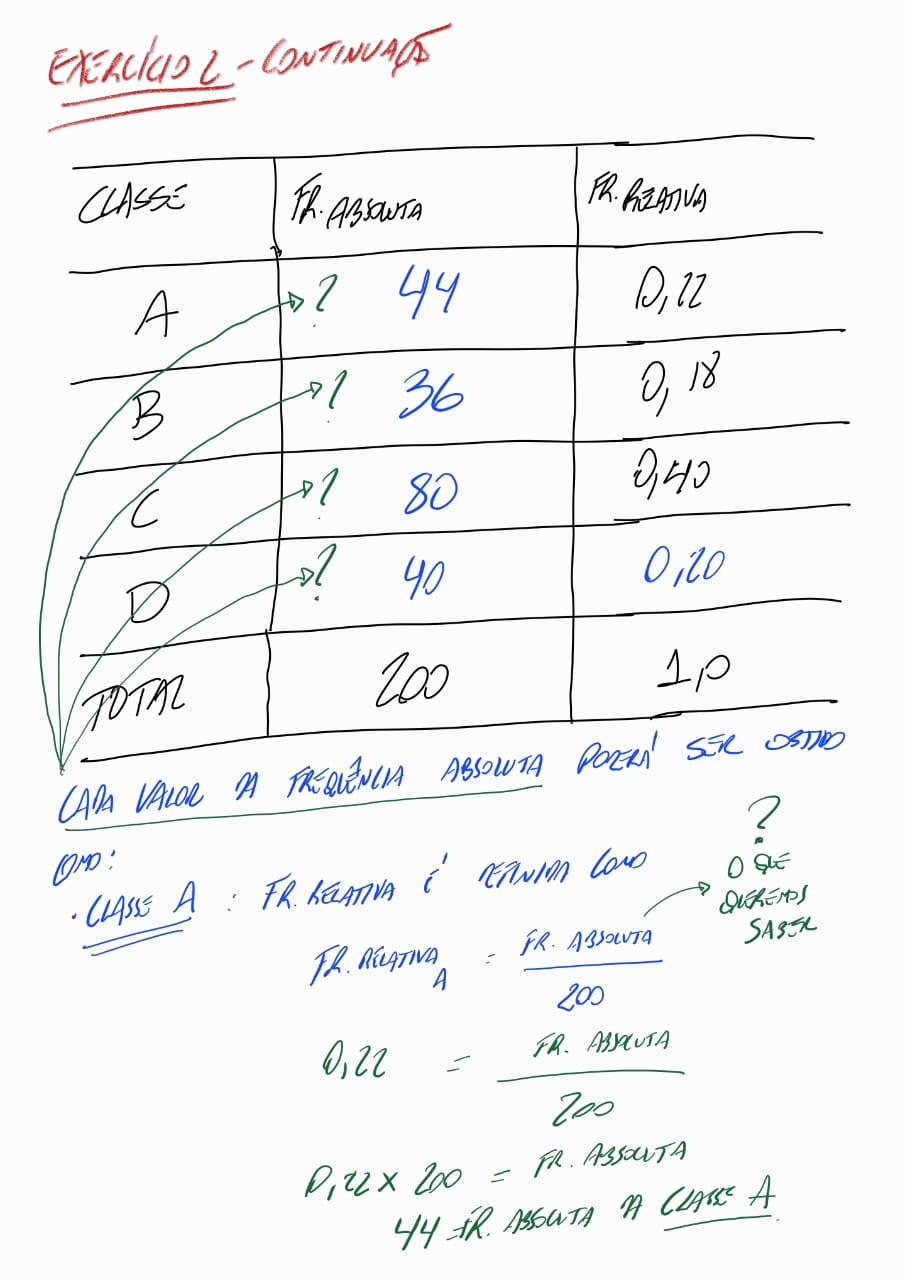 EXERCÍCIO 2 - CONTINUAÇÃO
CLASSE FR. ABSOLUTA FR. RELATIVA
A ? 44 0,22
B ? 36 0,18
C ? 80 0,40
D ? 40 0,20
TOTAL 200 1,0
CADA VALOR DA FREQUÊNCIA ABSOLUTA PODERÁ SER OBTIDO
COMO:
?
O QUE
QUEREMOS
SABER
· CLASSE A : FR. RELATIVA É DEFINIDA COMO
FR. RELATIVA A = FR. ABSOLUTA
200
0,22 = FR. ABSOLUTA
200
0,22 x 200 = FR. ABSOLUTA
44 FR. ABSOLUTA DA CLASSE A